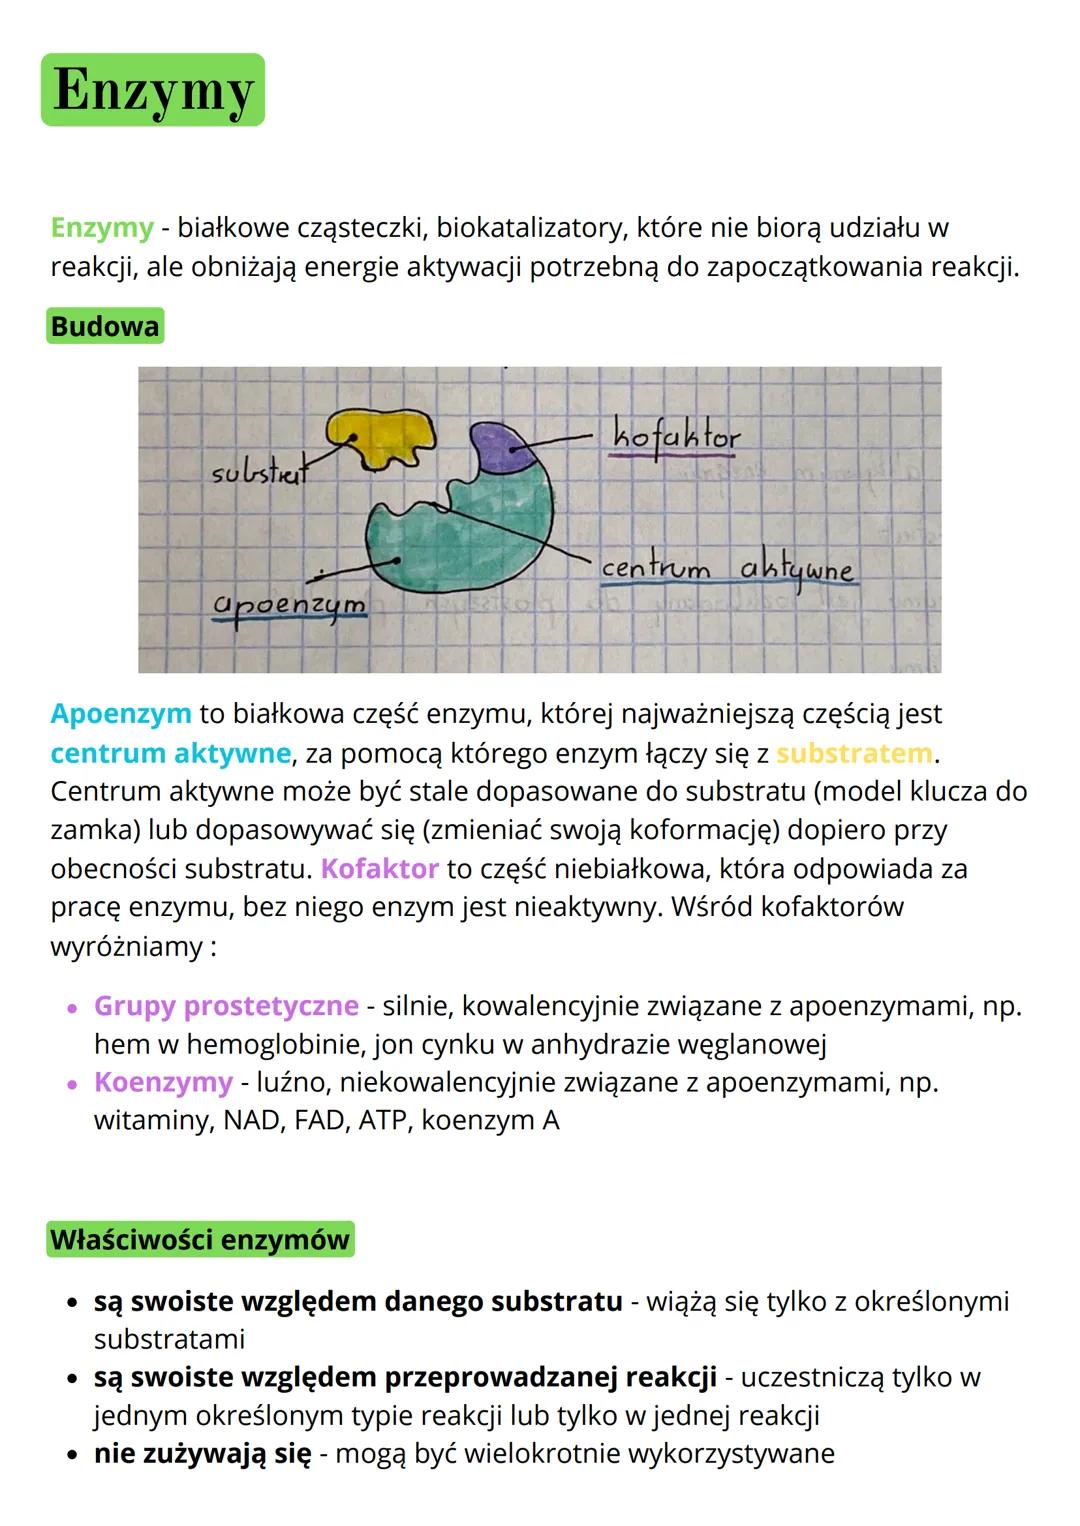 Enzymy
Enzymy - białkowe cząsteczki, biokatalizatory, które nie biorą udziału w
reakcji, ale obniżają energie aktywacji potrzebną do zapoczątkowania reakcji.
Budowa
kofaktor
substrat
centrum aktywne
apoenzym
Apoenzym to białkowa część enzymu, której najważniejszą częścią jest
centrum aktywne, za pomocą którego enzym łączy się z substratem.
Centrum aktywne może być stale dopasowane do substratu (model klucza do
zamka) lub dopasowywać się (zmieniać swoją koformację) dopiero przy
obecności substratu. Kofaktor to część niebiałkowa, która odpowiada za
pracę enzymu, bez niego enzym jest nieaktywny. Wśród kofaktorów
wyróżniamy :
• Grupy prostetyczne - silnie, kowalencyjnie związane z apoenzymami, np.
hem w hemoglobinie, jon cynku w anhydrazie węglanowej
• Koenzymy - luźno, niekowalencyjnie związane z apoenzymami, np.
witaminy, NAD, FAD, ATP, koenzym A
Właściwości enzymów
• są swoiste względem danego substratu - wiążą się tylko z określonymi
substratami
• są swoiste względem przeprowadzanej reakcji - uczestniczą tylko w
jednym określonym typie reakcji lub tylko w jednej reakcji
• nie zużywają się - mogą być wielokrotnie wykorzystywane